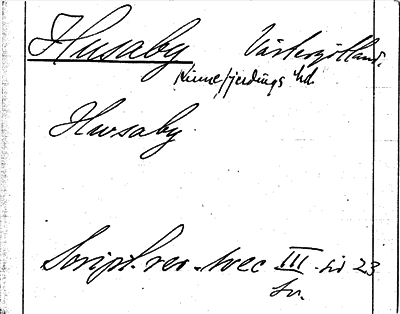 Husaby Västergötland.
Kinnefjerdings hd
Hwsaby
Script. rer. svec III. sid 23
sv.